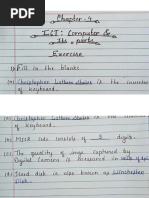 Chapter - 4
ICT : Computer &
its parts
Exercise
(1) Fill in the blanks
(1) Christopher Latham Sholes is the inventor
of keyboard.
(1) Christopher Latham Sholes is the inventor
of keyboard.
(2) MICR code consists of 9 digits.
(3) The quality of image captured by
digital camera is measured in
(4) Hard disk is also known as Winchester
Disk.